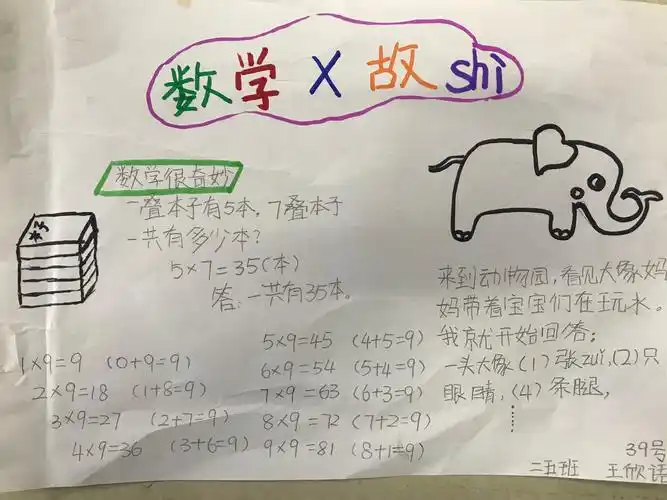 数学 X 故 shi
数学很奇妙
一叠本子有5本，7叠本子
一共有多少本？
5×7=35(本)
答：一共有35本。
1×9=9 (0+9=9)
2×9=18 (1+8=9)
3×9=27 (2+7=9)
4×9=36 (3+6=9)
5×9=45 (4+5=9)
6×9=54 (5+4=9)
7×9=63 (6+3=9)
8×9=72 (7+2=9)
9×9=81 (8+1=9)
来到动物园，看见大象妈
妈带着宝宝们在玩水。
我就开始回答：
一头大象(1)张zui，(2)只
眼睛，(4)条腿，
……
39号
二五班 王欣